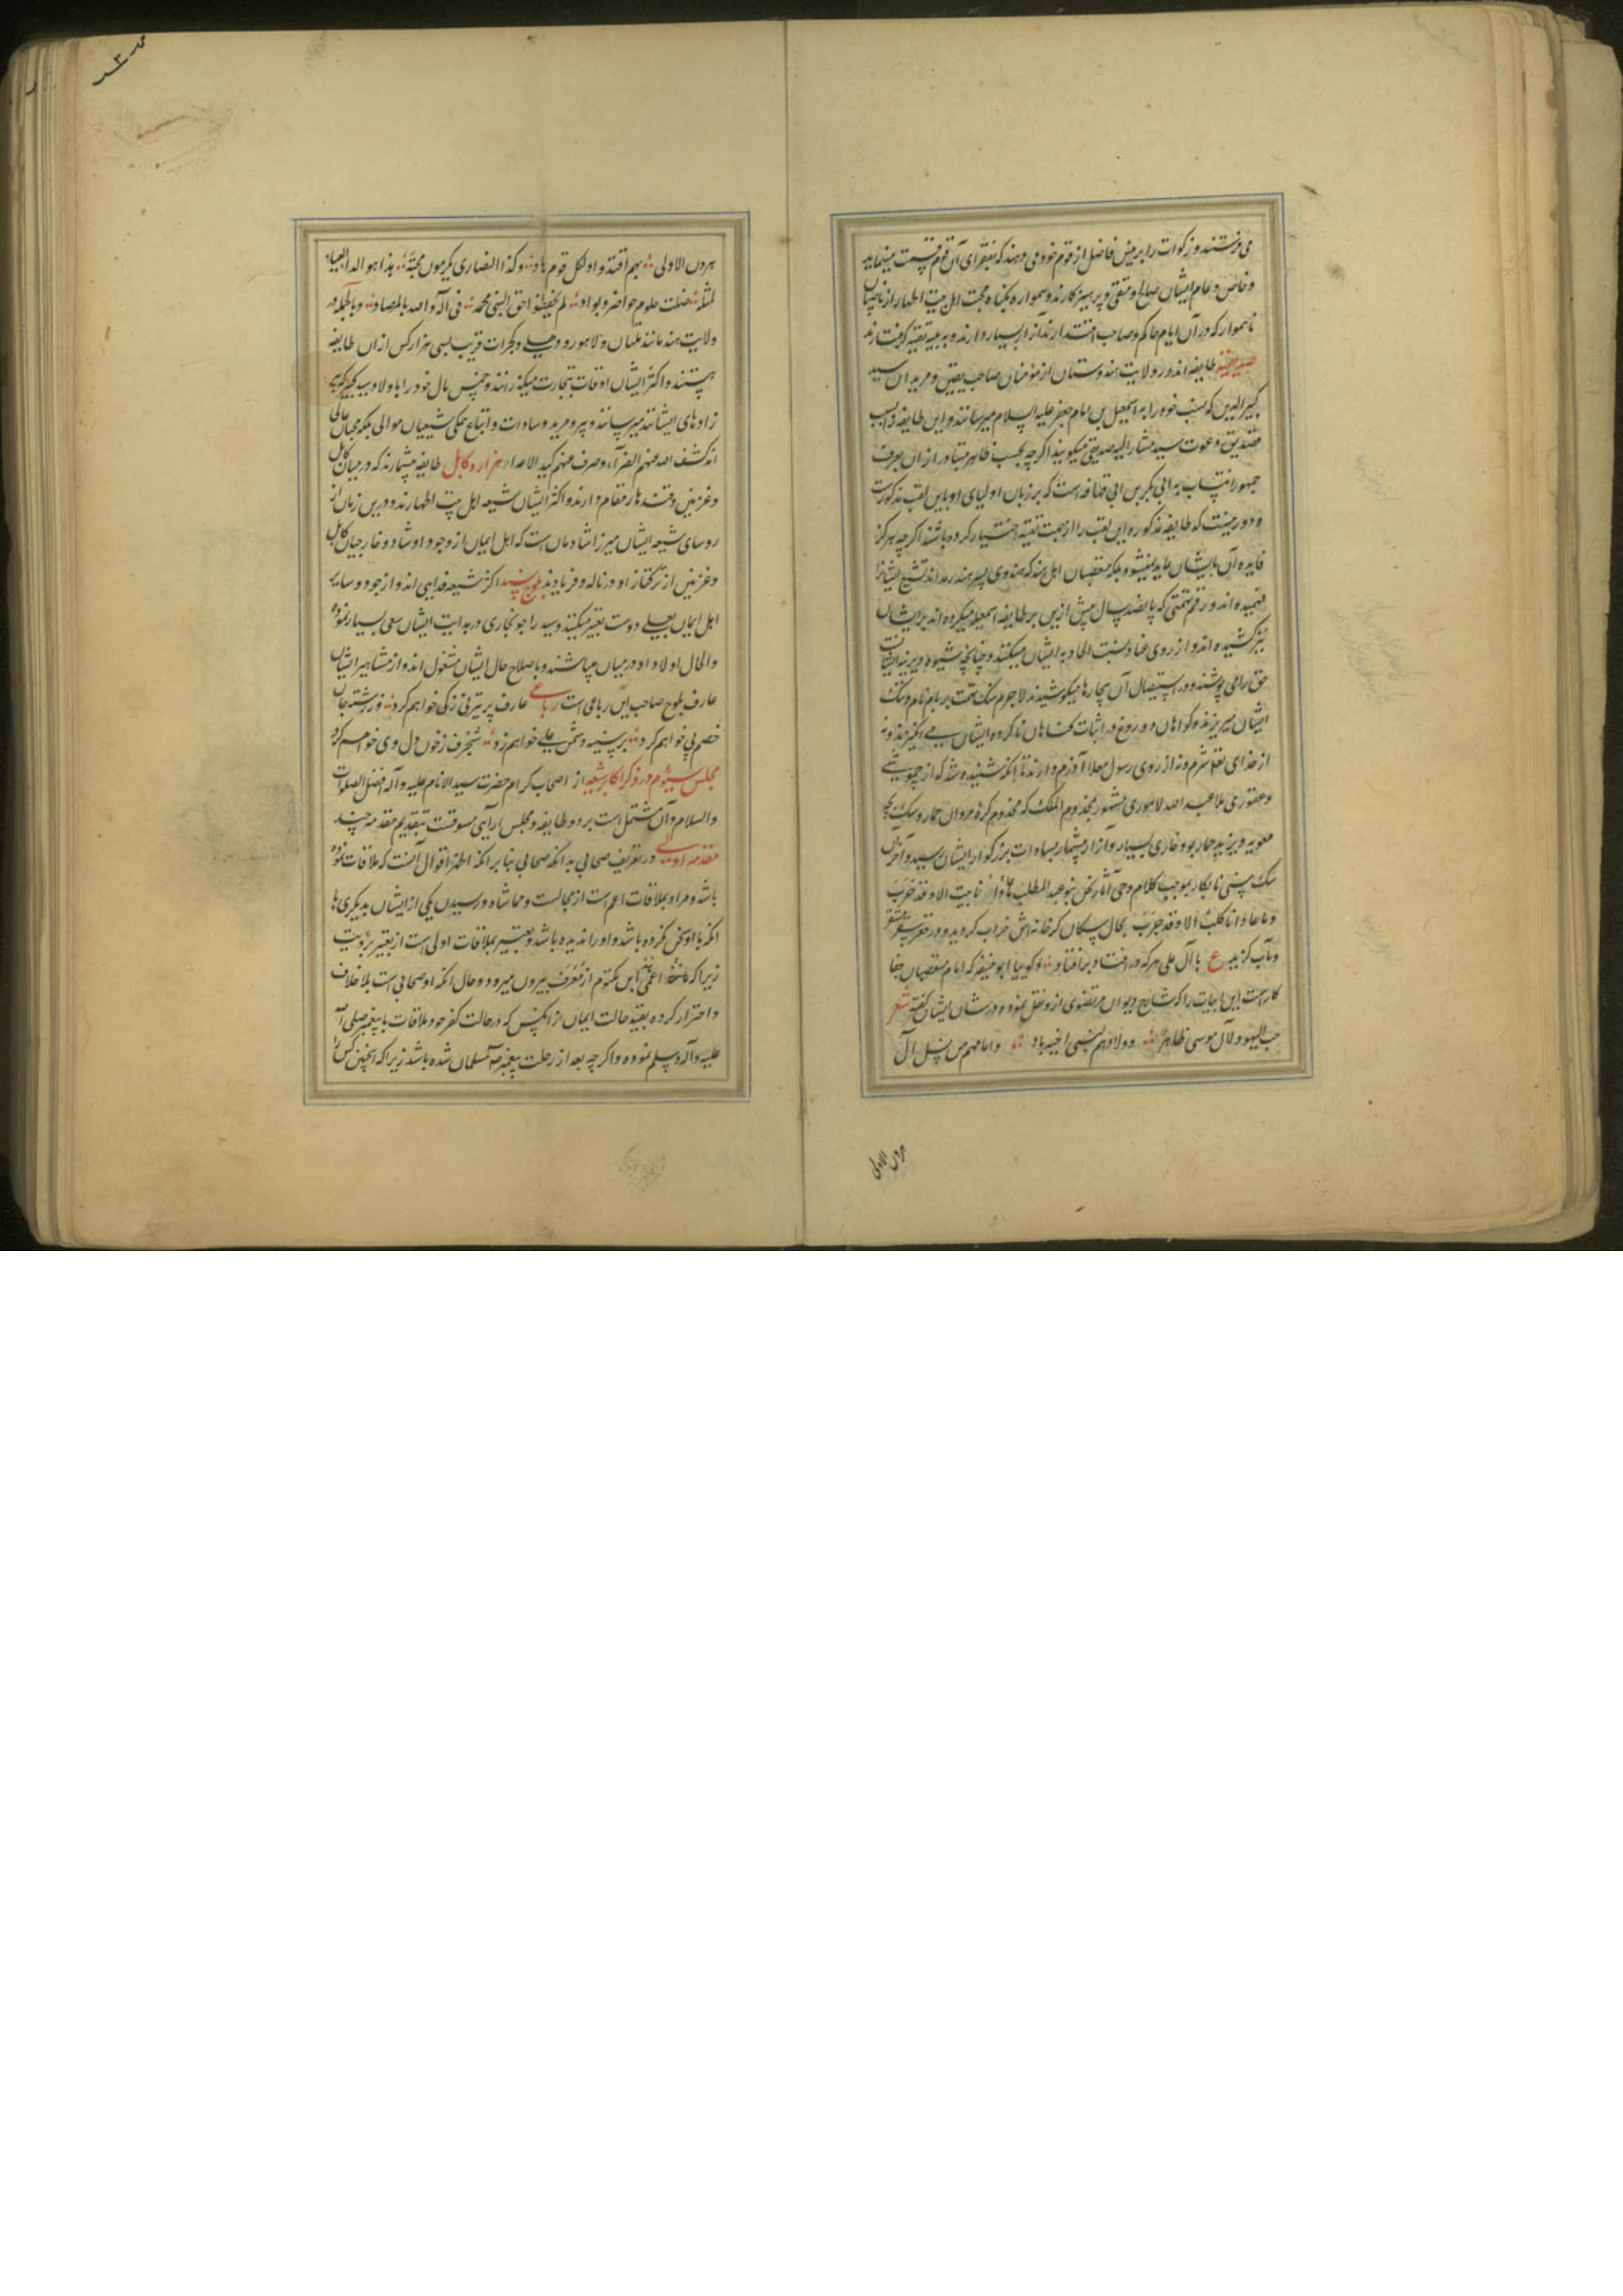 می‌فرستند و زکوات را بر میش فاضل از قوم خود می دهند که بفقرای آن قوم قسمت مینماید
و خاص و عام ایشان صالح و متقی و پرهیزکارند و همواره بگناه محبت اهل بیت اطهار از ناصبیان
ناهموار که در آن ایام حاکم و صاحب اقتدارند آزار بسیار دارند و به بلیه تقیه گرفتارند
صدیقیه طایفه اند در ولایت هندوستان از مؤمنان صاحب یقین و مریدان سید
کبیرالدین که نسب خود را به اسمعیل بن امام جعفر علیه السلام میرسانند و این طایفه را بسبب
تصدیق دعوت سید مشار الیه صدیقی میگویند اگرچه بحسب ظاهر متبادر از ان بعرف
جمهور انتساب به ابی بکر بن ابی قحافه است که بر زبان اولیای او باین لقب مذکورست
و دور نیست که طایفه مذکوره این لقب را از جهت تقیه اختیار کرده باشند اگرچه هرگز
فایده آن بایشان عاید نمیشود بلکه متعصبان اهل هند که هندوی پسر هندند تشیع ایشانرا
فهمیده اند و رقم تهمتی که پانصد سال پیش ازین بر طایفه اسمعیلیه میکرده اند بر ایشان
نیز کشیده اند و از روی عناد نسبت الحاد به ایشان میکنند و چنانچه شیوه دیرینه ایشانست
حق را می پوشند و در استیصال آن بیچارها میکوشند لاجرم سنک تهمت بر بام نام و ننک
ایشان میریزند و گواهان دروغ در اثبات گناهان ناکرده ایشان می انگیزند و نه
از خدای تعالی شرم و نه از روی رسول معلا آزرم دارند تا انکه شنیده شد که از
ملا عبد الله لاهوری مشهور بمخدوم الملک که مخدوم کره مروان حمار و سک
معویه و یزید حمار بود غاری بسیار و آزار بیشمار بسادات بزرگوار ایشان رسید و آخر آن
سک سنی نابکار بموجب کلام وحی آثار نحن بنو عبد المطلب ما عادانا بیت الا و قد خرب
و ما عاوانا کلب الا و قد جرب بحال سگان گرخانه اش خراب گردید و در قعر سقر مستقر
و مآب گزید ع با آل علی هر که درافتاد برافتاد و گوییا ابوحنیفه که امام متعصبان جفا
کار است این ابیات را که شارح دیوان مرتضوی ازو نقل نموده در شان ایشان گفته شعر
حب الیهود لآل موسی ظاهر و ولاؤهم لبنی اخیه باد و امامهم من نسل آل
هرون الاولی
هرون الاولی بهم اقتدوا و لکل قوم هاد و کذا النصاری یکرمون محبة هذا هو الداء العیاء
لمثله ضلت حلوم حواضر و بواد لم یحفظوا حق النبی محمد فی آله و الله بالمرصاد و بالجمله در
ولایت هند مانند ملتان و لاهور و دهلی و گجرات قریب بسی هزار کس از ان طایفه
هستند و اکثر ایشان اوقات بتجارت میگذرانند و خمس مال خود را باولاد سید کبیر که پیر
زادهای ایشانند میرسانند و پیر و مرید و سادات و اتباع همگی شیعیان موالی بلکه محبان عالی
اند کشف الله عنهم الضر آء و صرف عنهم کید الاعداء هزاره کابل طایفه بیشمارند که در میان کابل
و غزنین و قندهار مقام دارند و اکثر ایشان شیعه اهل بیت اطهارند و درین زمان از
روسای شیعه ایشان میرزا شادمان است که اهل ایمان از وجود او شاد و خارجیان کابل
و غزنین از ترکتاز او در ناله و فریادند بلوچ سند اکثر شیعه فدایی اند و از خود و سایر
اهل ایمان بعلی دوست تعبیر میکنند و سید راجو بخاری در هدایت ایشان سعی بسیار نموده
و الحال اولاد او در میان میباشند و باصلاح حال ایشان مشغول اند و از مشاهیر ایشان
عارف بلوچ صاحب این رباعی است رباعی عارف پر تیر نی زکی خواهم کرد وز رشته جان
خصم پی خواهم کرد بر سینه دشمن علی خواهم زد شنجرف ز خون دل وی خواهم کرد
مجلس سیوم در ذکر اکابر شیعه از اصحاب کرام حضرت سید الانام علیه و آله افضل الصلوات
والسلام و آن مشتمل است بر دو طایفه و مجلس آرایی مسوقست بتقدیم مقدمه چند
مقدمه اولی در تعریف صحابی بدانکه صحابی بنا بر انکه اظهر اقوال آنست که ملاقات نموده
باشد و مراد بملاقات اعم است از مجالست و مماشاة و رسیدن یکی از ایشان بدیگری با
انکه با او سخن نکرده باشد و او را ندیده باشد و تعبیر بملاقات اولی است از تعبیر برؤیت
زیرا که اعمی ابن مکتوم از معرف بیرون میرود و حال انکه او صحابی است بلا خلاف
و احتراز کرده بقید حالت ایمان از انکس که در حالت کفر خود ملاقات با پیغمبر صلی الله
علیه و آله و سلم نموده و اگرچه بعد از رحلت پیغمبر مسلمان شده باشد زیرا که اینچنین کس را